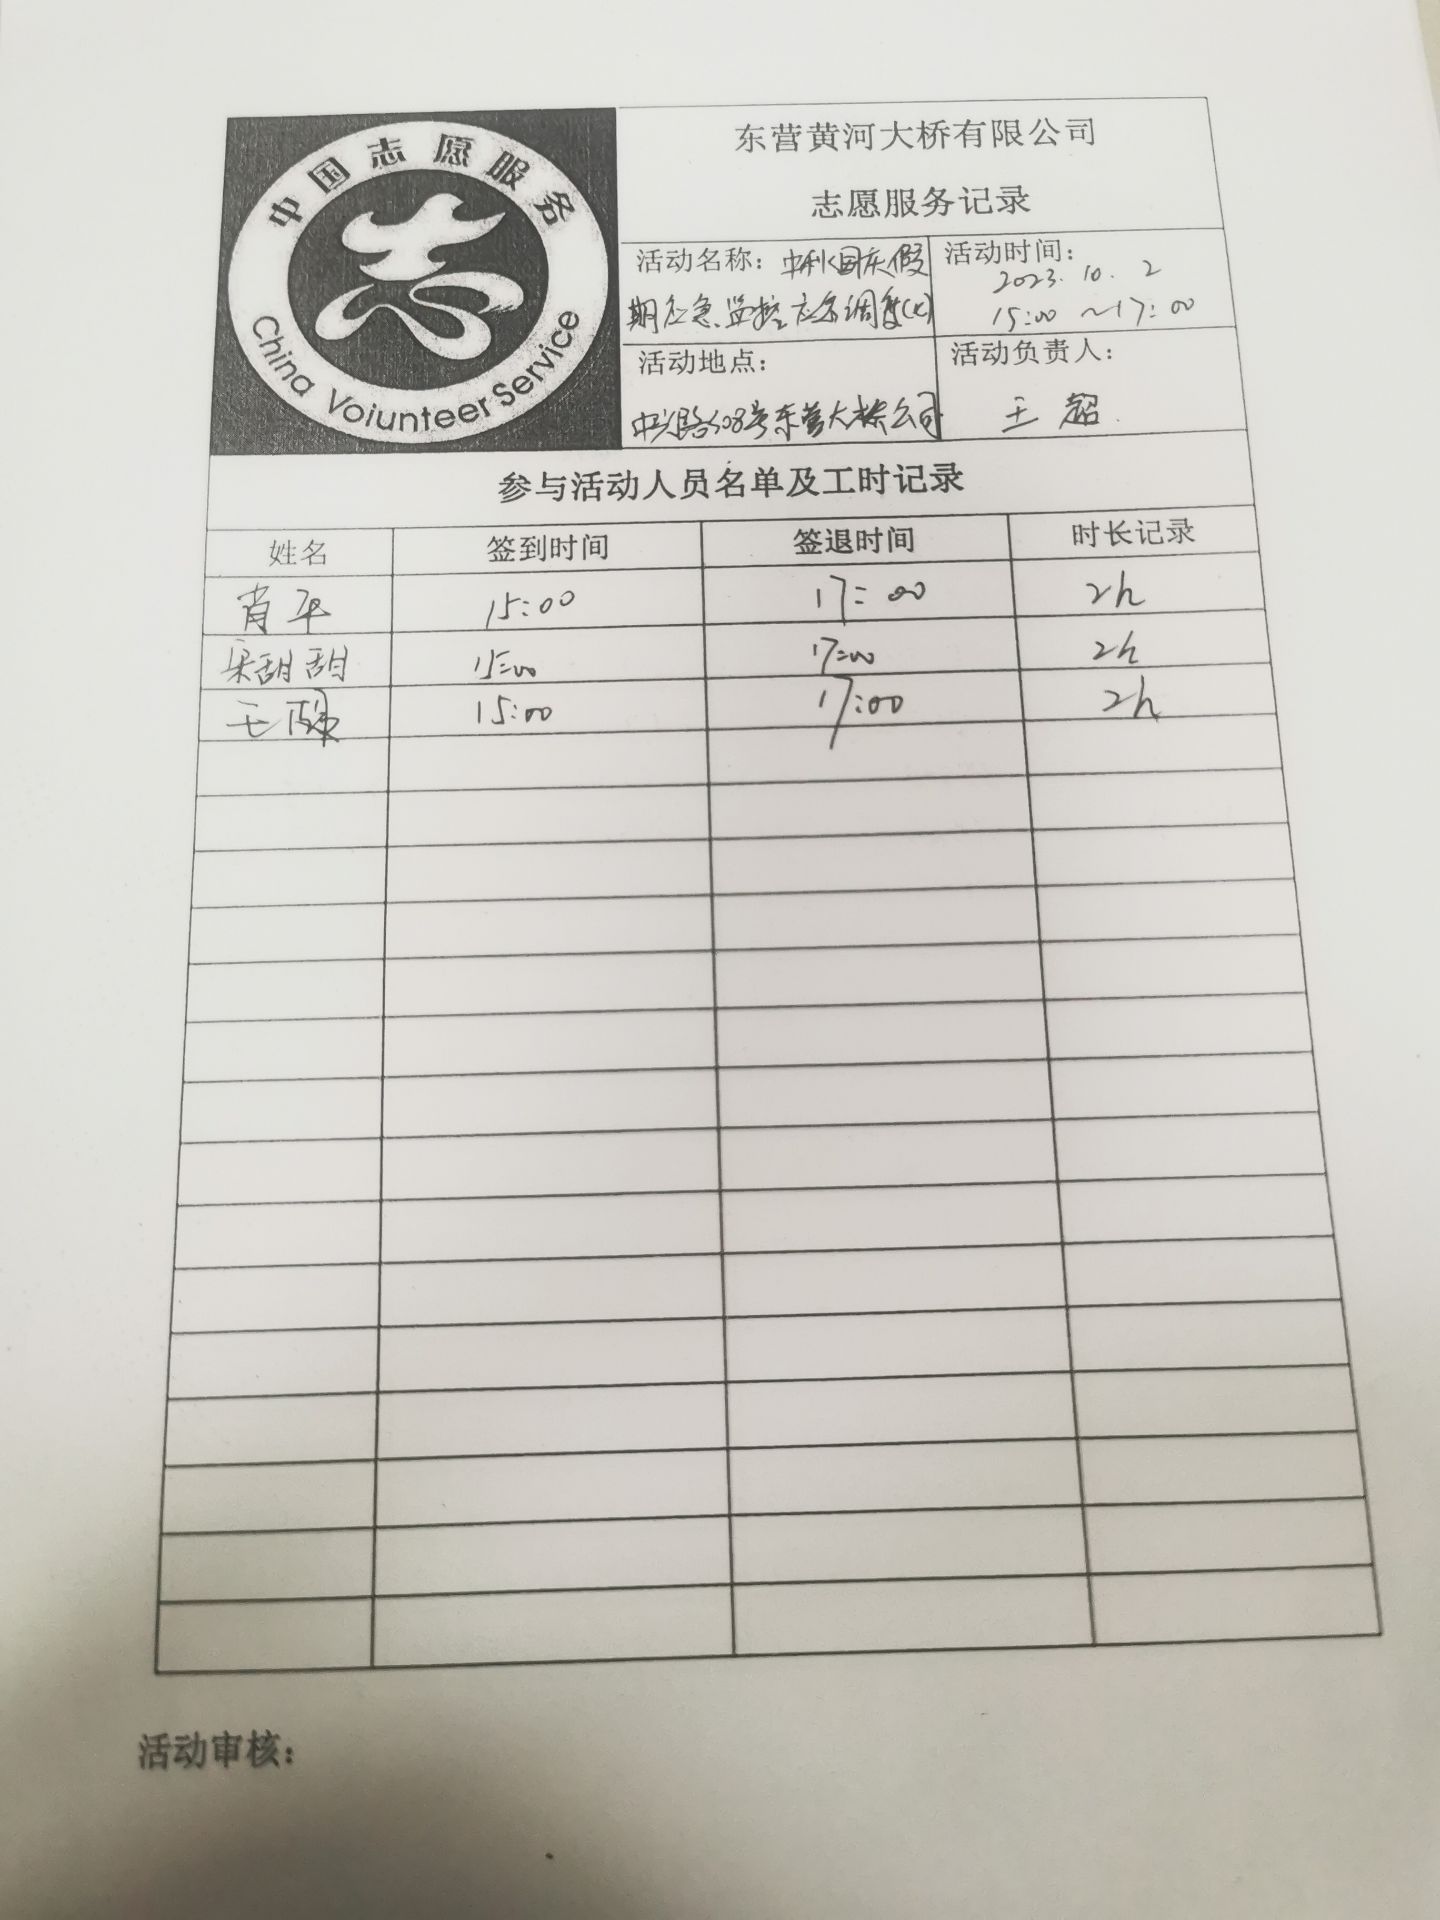 中国志愿服务
China Voiunteer Service
东营黄河大桥有限公司
志愿服务记录
活动名称：中秋国庆假
期应急监控应急调度(七)
活动时间：
2023.10.2
15:00～17:00
活动地点：
号东营大桥公司
活动负责人：
王超
参与活动人员名单及工时记录
姓名 签到时间 签退时间 时长记录
肖平 15:00 17:00 2h
甜甜 15:00 17:00 2h
王 15:00 17:00 2h
活动审核：